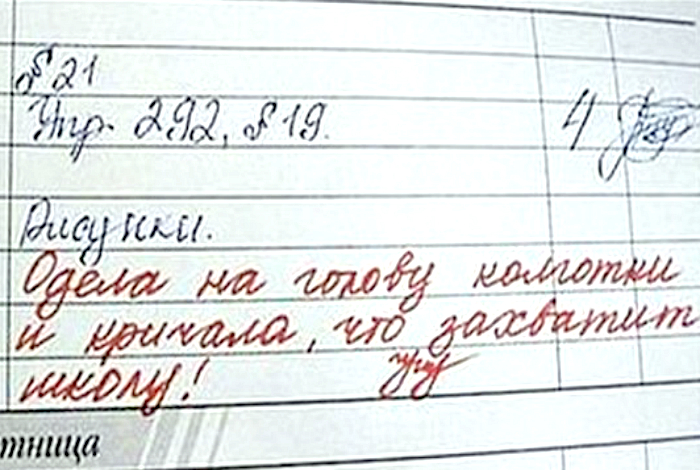 § 21
Упр. 292, § 19. 4
Рисунки.
Одела на голову колготки
и кричала, что захватит
школу!
тница